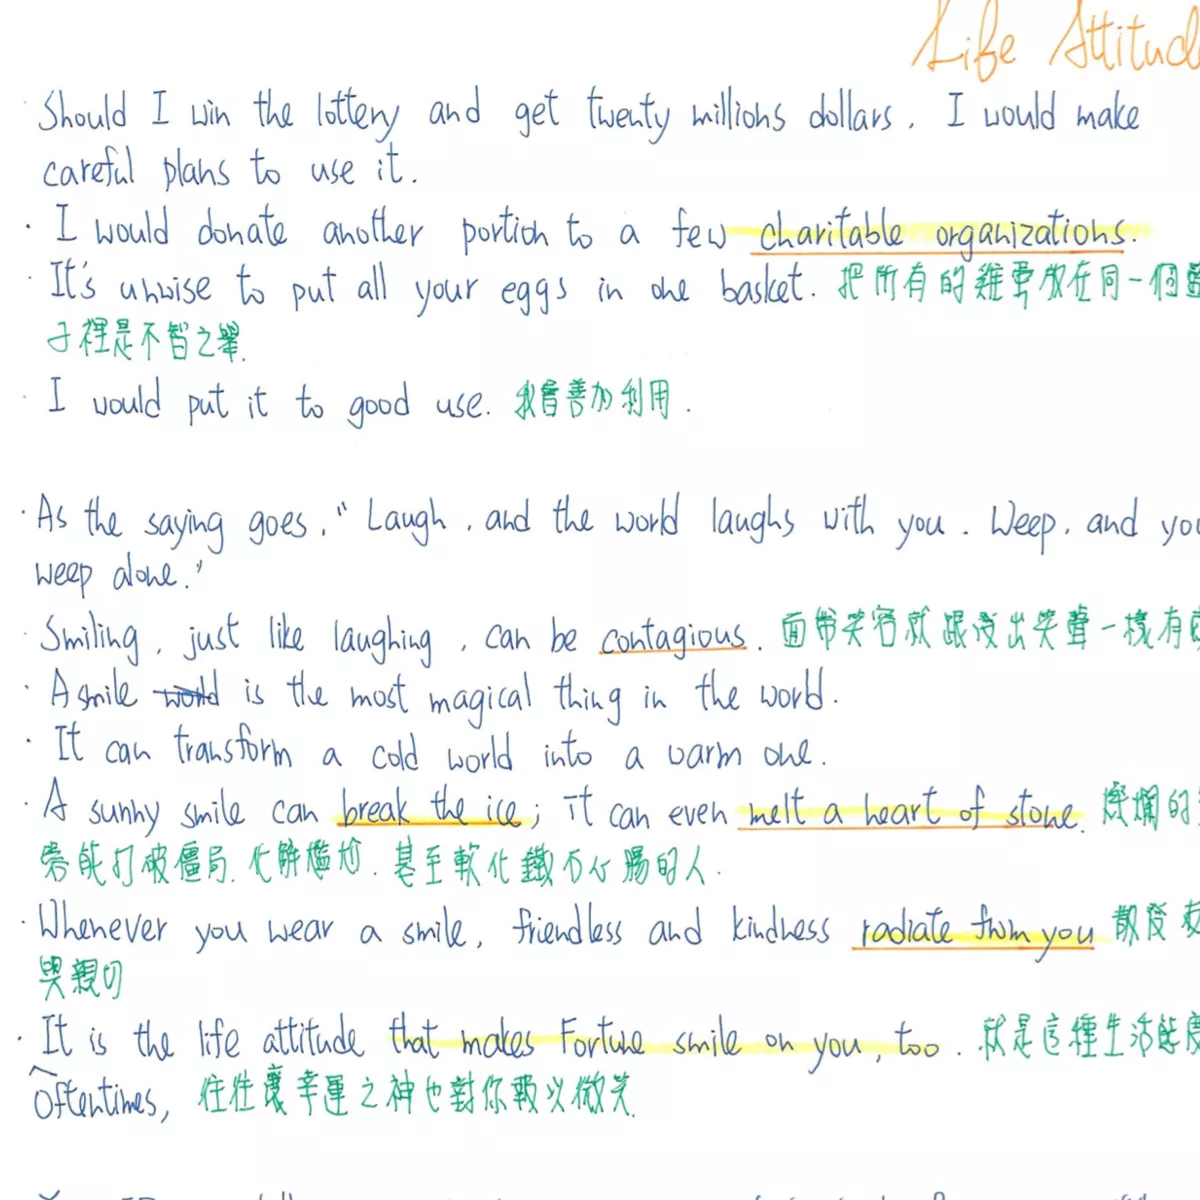 Life Attitud
· Should I win the lottery and get twenty millions dollars, I would make
careful plans to use it.
· I would donate another portion to a few charitable organizations.
· It's unwise to put all your eggs in one basket. 把所有的雞蛋放在同一個籃
子裡是不智之舉.
· I would put it to good use. 我會善加利用.
· As the saying goes, "Laugh, and the world laughs with you. Weep, and you
weep alone."
· Smiling, just like laughing, can be contagious. 面帶笑容就跟發出笑聲一樣有
· A smile world is the most magical thing in the world.
· It can transform a cold world into a warm one.
· A sunny smile can break the ice; it can even melt a heart of stone. 燦爛的笑
容能打破僵局.化解尷尬.甚至軟化鐵石心腸的人.
· Whenever you wear a smile, friendless and kindness radiate from you 散發友
與親切
· It is the life attitude that makes Fortune smile on you, too. 就是這種生活態度
Oftentimes, 往往讓幸運之神也對你報以微笑.